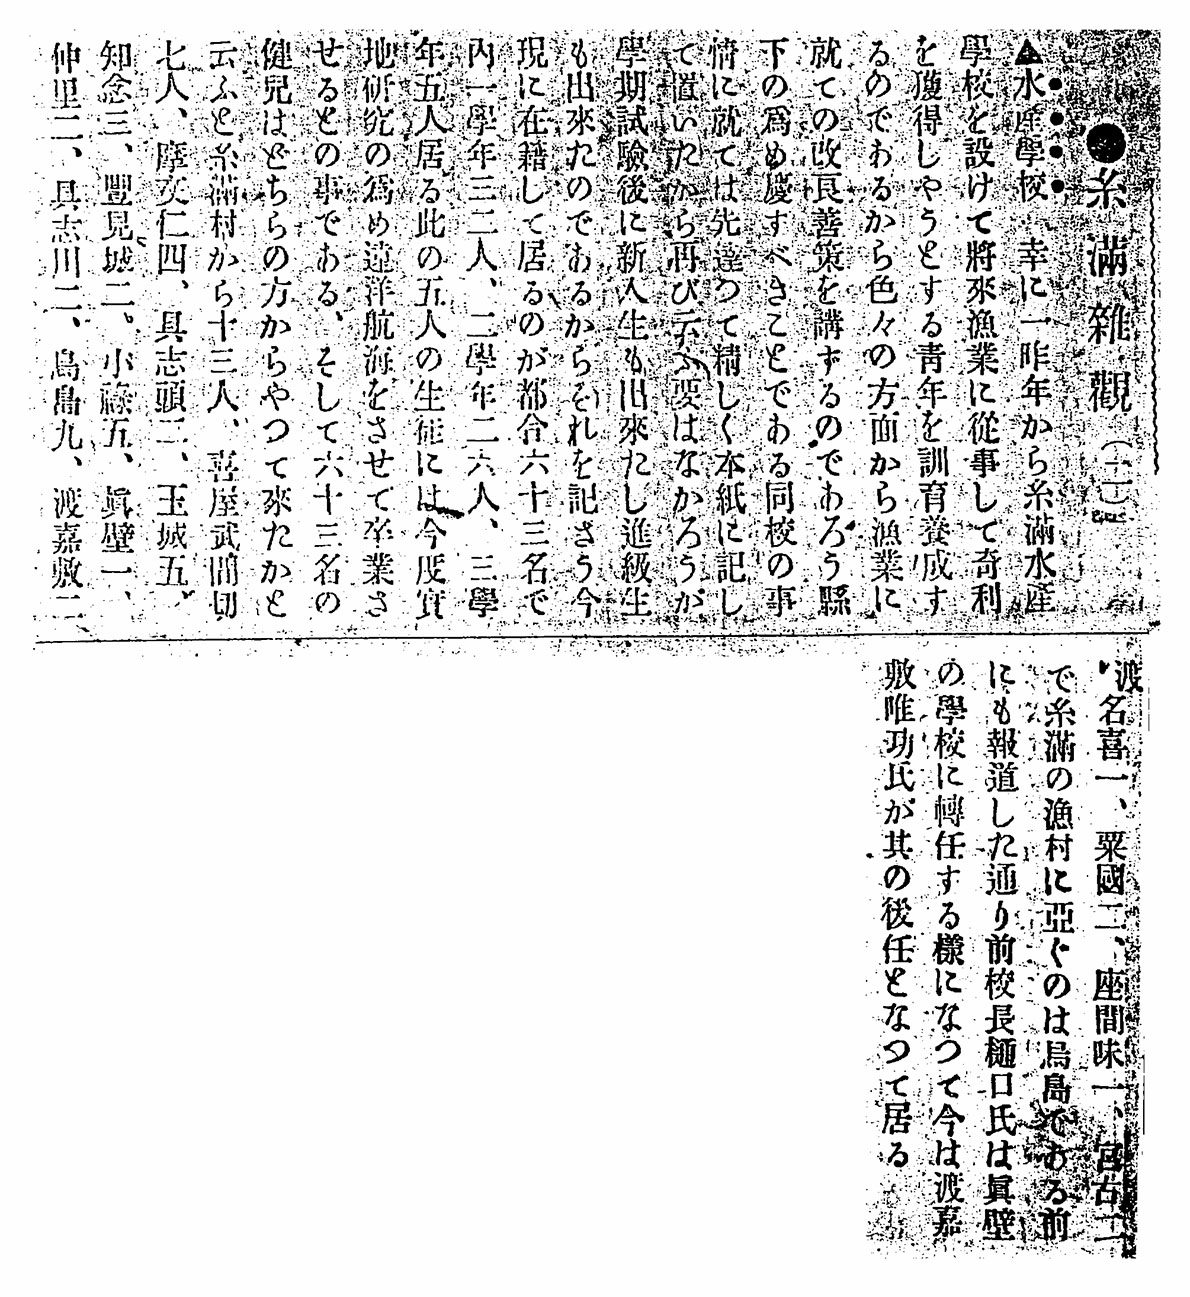 ●糸滿雜觀(三)
▲水產學校 幸に一昨年から糸滿水産
學校を設けて將來漁業に從事して奇利
を獲得しやうとする靑年を訓育養成す
るのであるから色々の方面から漁業に
就ての改良善策を講ずるのであろう縣
下の爲め慶すべきことである同校の事
情に就ては先達つて精しく本紙に記し
て置いたから再び云ふ要はなかろうが
學期試驗後に新入生も出來たし進級生
も出來たのであるからそれを記さう今
現に在籍して居るのが都合六十三名で
内一學年三二人、二學年二六人、三學
年五人居る此の五人の生徒には今度實
地硏究の爲め遠洋航海をさせて卒業さ
せるとの事である、そして六十三名の
健兒はどちらの方からやつて來たかと
云ふと糸滿村から十三人、喜屋武間切
七人、摩文仁四、具志頭三、玉城五、
知念三、豐見城二。小祿五、眞壁一、
仲里二、具志川二、鳥島九、渡嘉敷二
、渡名喜一、粟國二、座間味一、宮古二
で糸滿の漁村に亞ぐのは鳥島である前
にも報道した通り前校長樋口氏は眞壁
の學校に轉任する樣になつて今は渡嘉
敷唯功氏が其の後任となつて居る